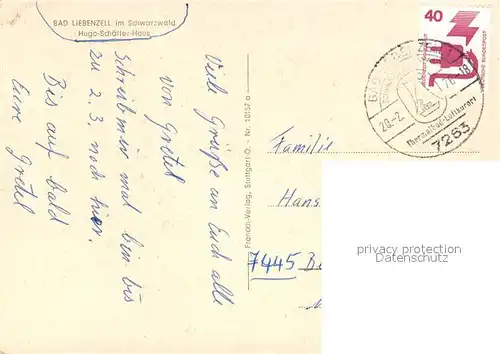 BAD LIEBENZELL im Schwarzwald
Hugo-Schäffer-Haus
Viele Grüße an Euch alle
von Gretel
Schreib mir mal bin bis
zu 2. 3. noch hier.
Bis auf bald
Eure
Gretel
Franconi-Verlag, Stuttgart-O - Nr. 10157 a
40
DEUTSCHE BUNDESPOST
20.-2.
-18
Thermalbad-Luftkurort
7263
Familie
Hans
7445 Be
privacy protection
Datenschutz